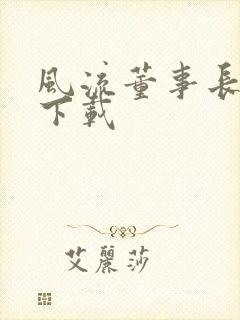 風流董事長
下載
艾麗莎